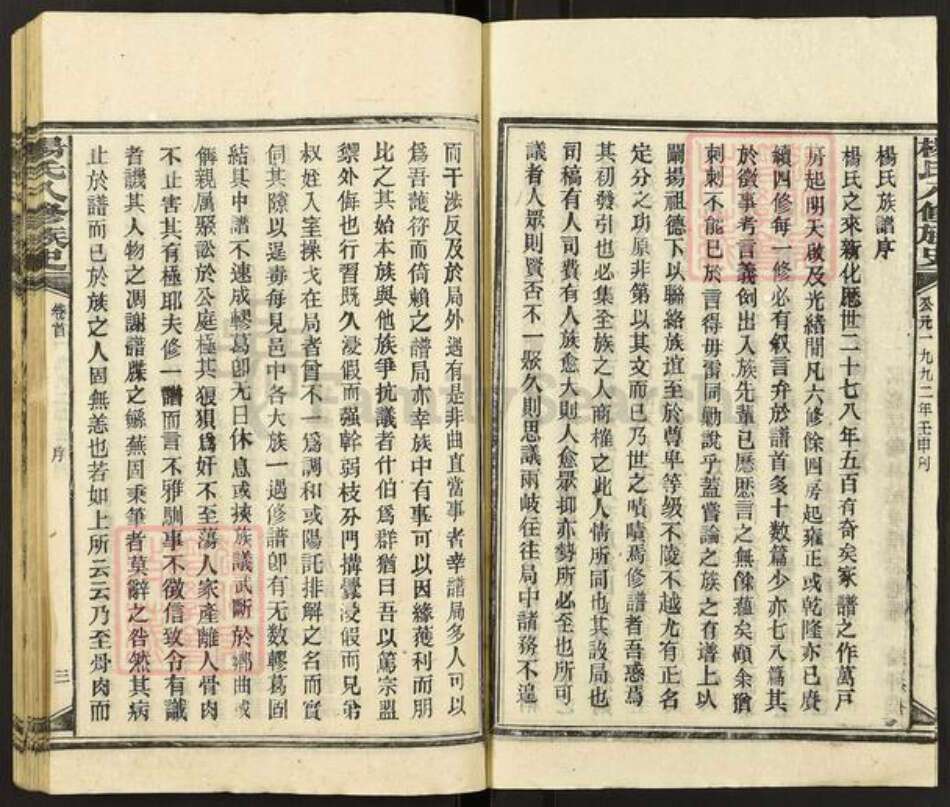 楊氏八修族史
公元一九九二年壬申刊
楊氏族譜序
楊氏之來新化歷世二十七八年五百有奇矣家譜之作萬戸
房起明天啟及光緖間凡六修餘四房起雍正或乾隆亦已賡
續四修每一修必有叙言弁於譜首多十數篇少亦七八篇其
於徵事考言義例出入族先輩已歷歷言之無餘蘊矣顧余猶
刺刺不能已於言得毋雷同勦說乎蓋嘗論之族之有谱上以
闡揚祖德下以聯絡族誼至於尊卑等級不陵不越尤有正名
定分之功原非第以其文而已乃世之嘖嘖焉修譜者吾惑焉
其初發引也必集全族之人商榷之此人情所同也其設局也
司稿有人司費有人族愈大則人愈眾抑亦勢所必至也所可
議者人眾則賢否不一聚久則思議兩岐往往局中諸務不遑
而干涉反及於局外遇有是非曲直當事者幸譜局多人可以
爲吾護符而倚賴之譜局亦幸族中有事可以因緣蓰利而朋
比之其始本族與他族爭抗議者什伯爲群猶曰吾以篤宗盟
禦外侮也行習既久浸假而强幹弱枝分門搆釁浸假而兄弟
叔姓入室操戈在局者嘗不一爲調和或陽託排解之名而實
伺其隙以逞毒每見邑中各大族一遇修譜卽有无数轇葛固
結其中譜不速成轇葛卽无日休息或挾族議武斷於鄉曲或
儕親属聚訟於公庭極其狼狽爲奸不至蕩人家產離人骨肉
不止害其有極耶夫修一譜而言不雅馴事不徵信致令有識
者譏其人物之凋謝譜牒之緜蕪因秉筆者莫辭之咎然其病
止於譜而已於族之人固無恙也若如上所云云乃至骨肉而
楊氏八修族史
卷首
序
三